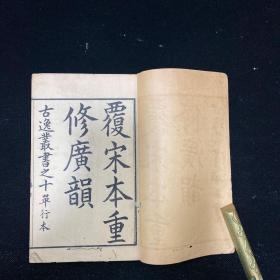 覆宋本重
修廣韻
古逸叢書之十單行本